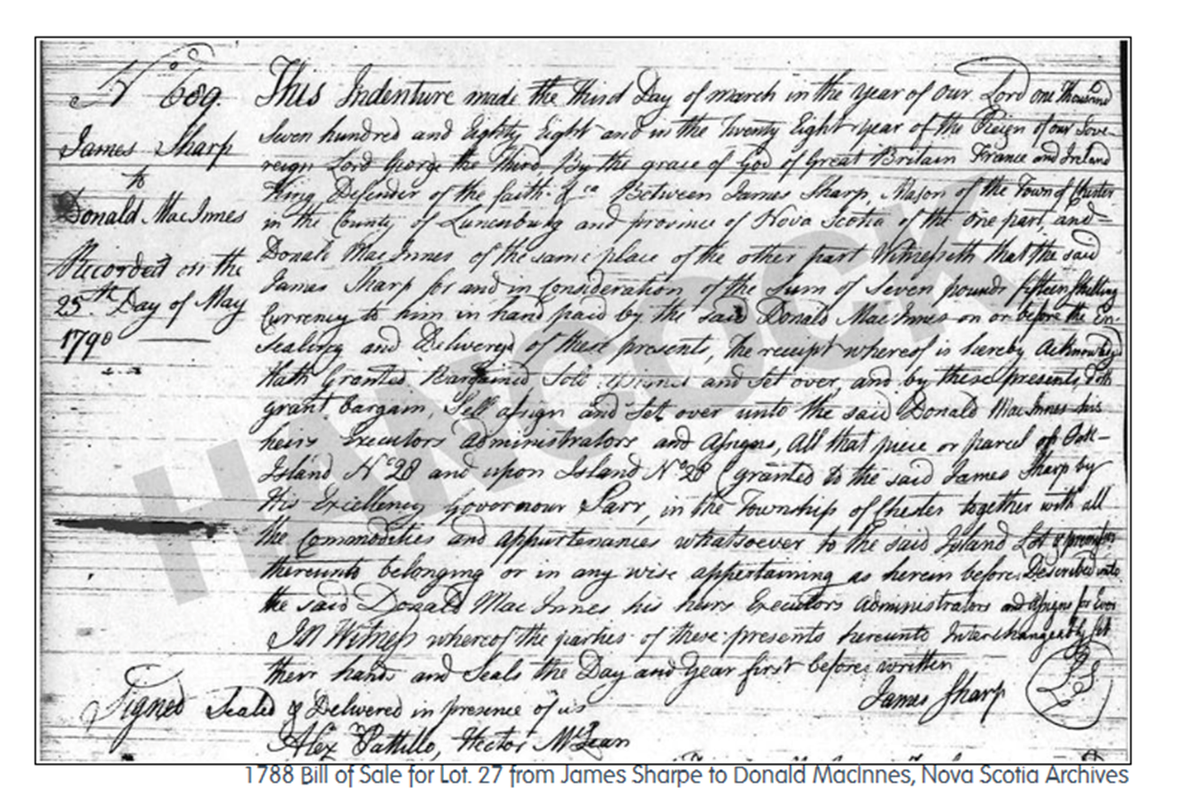 No 689.
James Sharp
to
Donald MacInnes
Recorded on the
25th Day of May
1790
This Indenture made the third Day of march in the year of our Lord one thousand
Seven hundred and Eighty Eight and in the Twenty Eight year of the Reign of our Sove-
reign Lord George the third By the grace of God of Great Britain France and Ireland
King Defender of the faith &ca Between James Sharp, Mason of the Town of Chester
in the County of Lunenburg and province of Nova Scotia of the one part, and
Donald MacInnes of the same place of the other part Witnesseth that the said
James Sharp for and in Consideration of the Sum of Seven pounds fifteen shilling
Currency to him in hand paid by the said Donald MacInnes on or before the En-
Sealing and Delivered of these presents, the receipt whereof is hereby Acknowledgd
Hath Granted Bargained Sold and Set over, and by these presents doth
grant bargain, Sell assign and Set over unto the said Donald MacInnes his
heirs Executors administrators and Assigns, All that piece or parcel of Oak-
Island No 28 and upon Island No 28 granted to the said James Sharp by
His Excellency Governour Parr, in the Township of Chester together with all
the Comodities and appurtenances whatsoever to the said Island Lot &
thereunto belonging or in any wise appertaining as herein before Described unto
the said Donald MacInnes his heirs Executors administrators and Assigns for Ever
In Witness whereof the parties of these presents hereunto Interchangeably set
their hands and Seals the Day and year first before written
James Sharp LS
Signed Sealed & Delivered in presence of us
Alex Pattillo, Hector McLean
HANCOCK
1788 Bill of Sale for Lot. 27 from James Sharpe to Donald MacInnes, Nova Scotia Archives